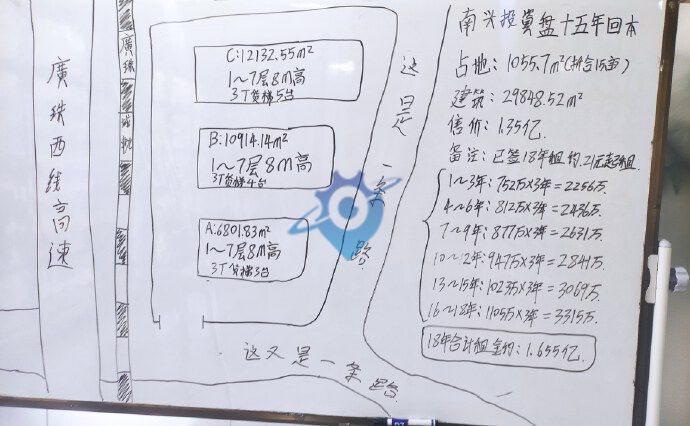 廣珠西线高速
廣珠城軌
C:12132.55m²
1～7层8M高
3T货梯5台
B:10914.14m²
1～7层8M高
3T货梯4台
A:6801.83m²
1～7层8M高
3T货梯3台
这是一条路
这又是一条路
南兴投算盘十五年回本
占地:1055.7m²(折合15亩)
建筑:29848.52m²
售价:1.35亿.
备注:已签18年租约.21元起租.
1～3年:752万×3年=2256万.
4～6年:812万×3年=2436万.
7～9年:877万×3年=2631万.
10～12年:947万×3年=2841万.
13～15年:1023万×3年=3069万.
16～18年:1105万×3年=3315万.
18年合计租金约:1.655亿.